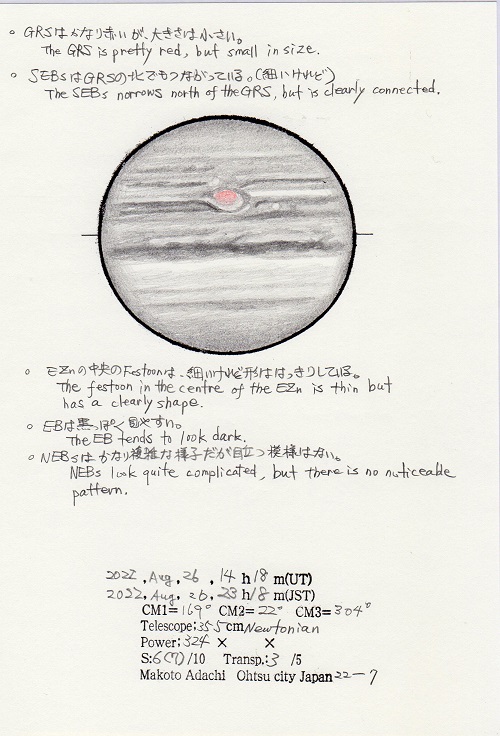 ○ GRSはかなり赤いが、大きさは小さい。
The GRS is pretty red, but small in size.
○ SEBsはGRSの北でもつながっている。(細いけれど)
The SEBs norrows north of the GRS, but is clearly connected.
○ EZnの中央のFestoonは、細いけれど形ははっきりしている。
The festoon in the centre of the EZn is thin but
has a clearly shape.
○ EBは黒っぽく見やすい。
The EB tends to look dark.
○ NEBsはかなり複雑な様子だが目立つ模様はない。
NEBs look quite complicated, but there is no nuticeable
pattern.
2022, Aug, 26, 14 h 18 m(UT)
2022, Aug, 26, 23 h 18 m(JST)
CM1=169° CM2=22° CM3=304°
Telescope;355cm Newtonian
Power;324 × ×
S:6(7)/10 Transp.:3 /5
Makoto Adachi Ohtsu city Japan 22-7